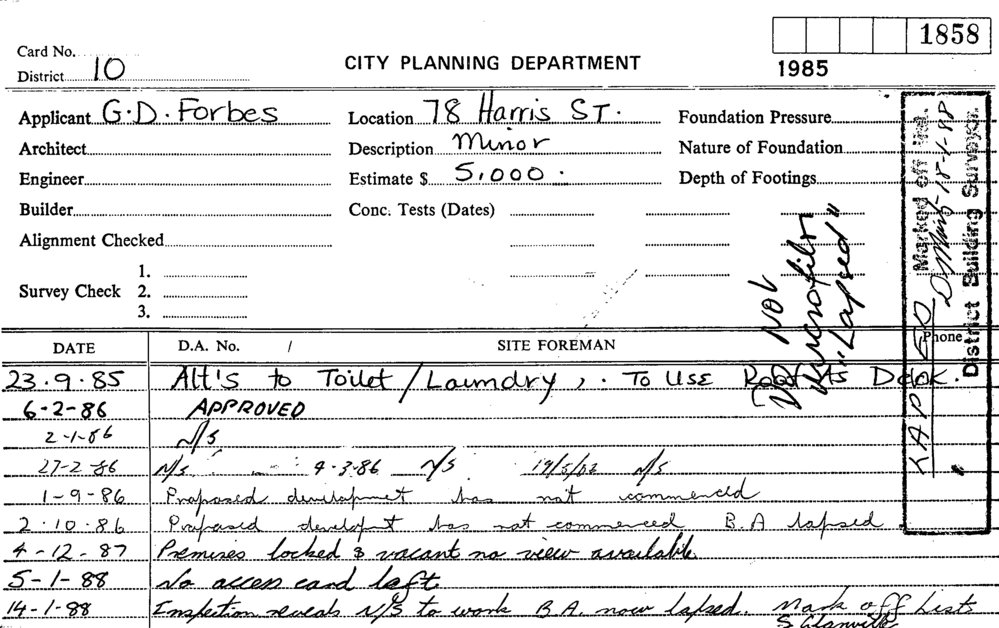 1858
Card No.
CITY PLANNING DEPARTMENT
1985
District 10
Applicant G.D. Forbes
Location 78 Harris ST.
Foundation Pressure
Architect
Description Minor
Nature of Foundation
Engineer
Estimate $ 5,000.
Depth of Footings
Builder
Conc. Tests (Dates)
Alignment Checked
1.
Survey Check 2.
3.
Do Not
Microfilm
"Lapsed"
Marked off
18-1-88
District Building Surveyor
DATE D.A. No. / SITE FOREMAN Phone
23.9.85 Alt's to Toilet/Laundry, . To Use Roof As Deck.
6-2-86 APPROVED
2-1-86 N/S
27-2-86 N/S 4-3-86 N/S N/S
1-9-86 Proposed development has not commenced
2.10.86 Proposed developt has not commenced B.A lapsed
4-12-87 Premises locked & vacant no view available
5-1-88 No access card left
14-1-88 Inspection reveals N/S to work B.A. now lapsed. Mark off Lists